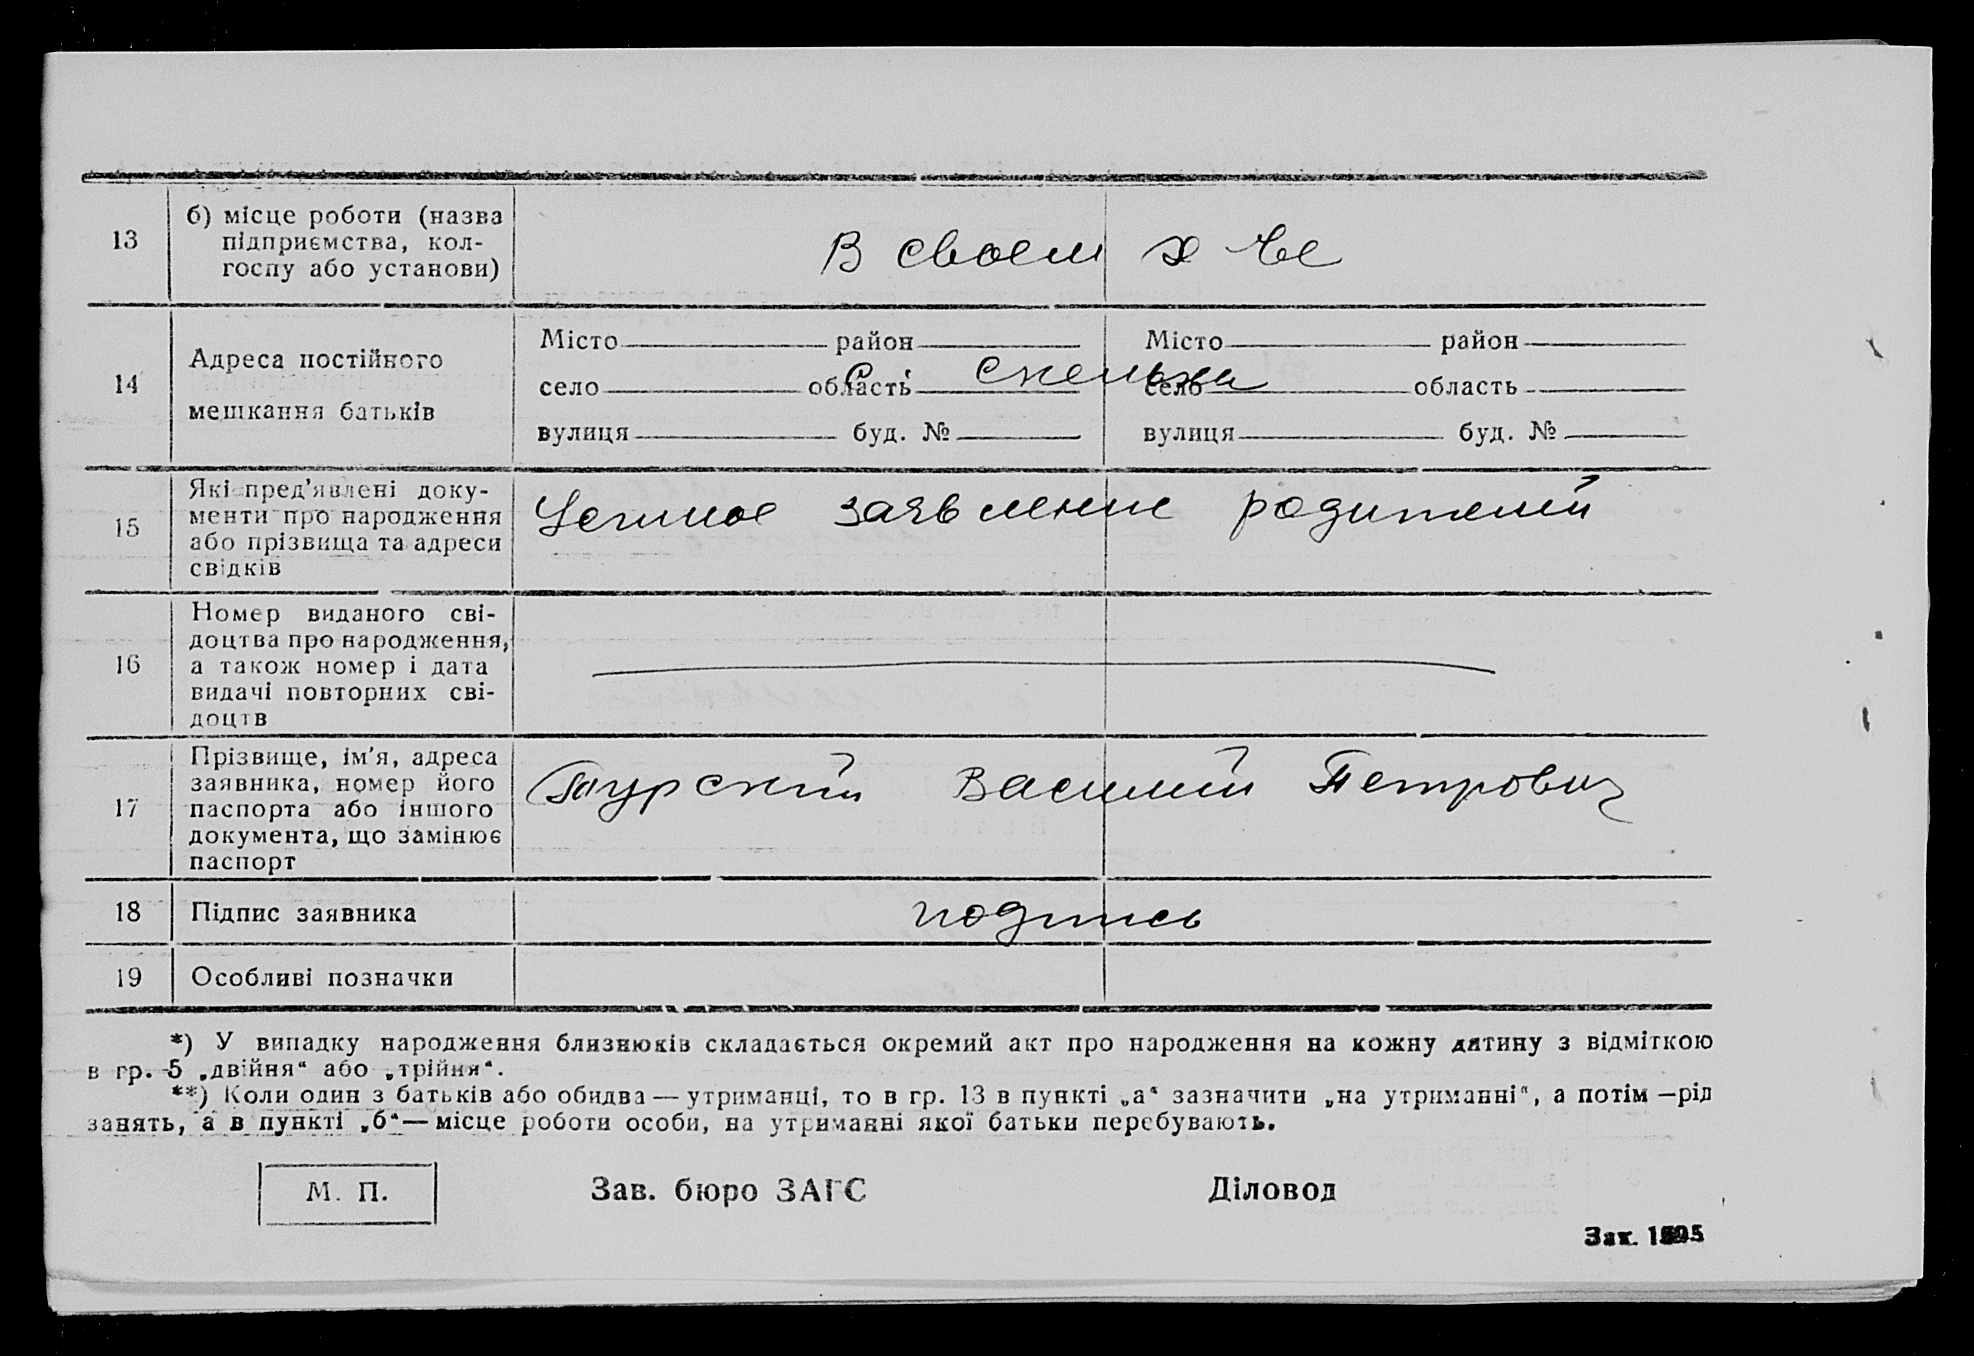 13
б) місце роботи (назва
підприємства, кол-
госпу або установи)
В своем х-ве
14
Адреса постійного
мешкання батьків
Місто район
село область
вулиця буд. №
Місто район
село область
вулиця буд. №
с. Скельки
15
Які пред’явлені доку-
менти про народження
або прізвища та адреси
свідків
Устное заявление родителей
16
Номер виданого сві-
доцтва про народження,
а також номер і дата
видачі повторних сві-
доцтв
17
Прізвище, ім’я, адреса
заявника, номер його
паспорта або іншого
документа, що замінює
паспорт
Василий Петрович
18
Підпис заявника
подпись
19
Особливі позначки
*) У випадку народження близнюків складається окремий акт про народження на кожну дитину з відміткою
в гр. 5 „двійня“ або „трійня“.
**) Коли один з батьків або обидва — утриманці, то в гр. 13 в пункті „а“ зазначити „на утриманні“, а потім — рід
занять, а в пункті „б“ — місце роботи особи, на утриманні якої батьки перебувають.
М. П.
Зав. бюро ЗАГС
Діловод
Зак.